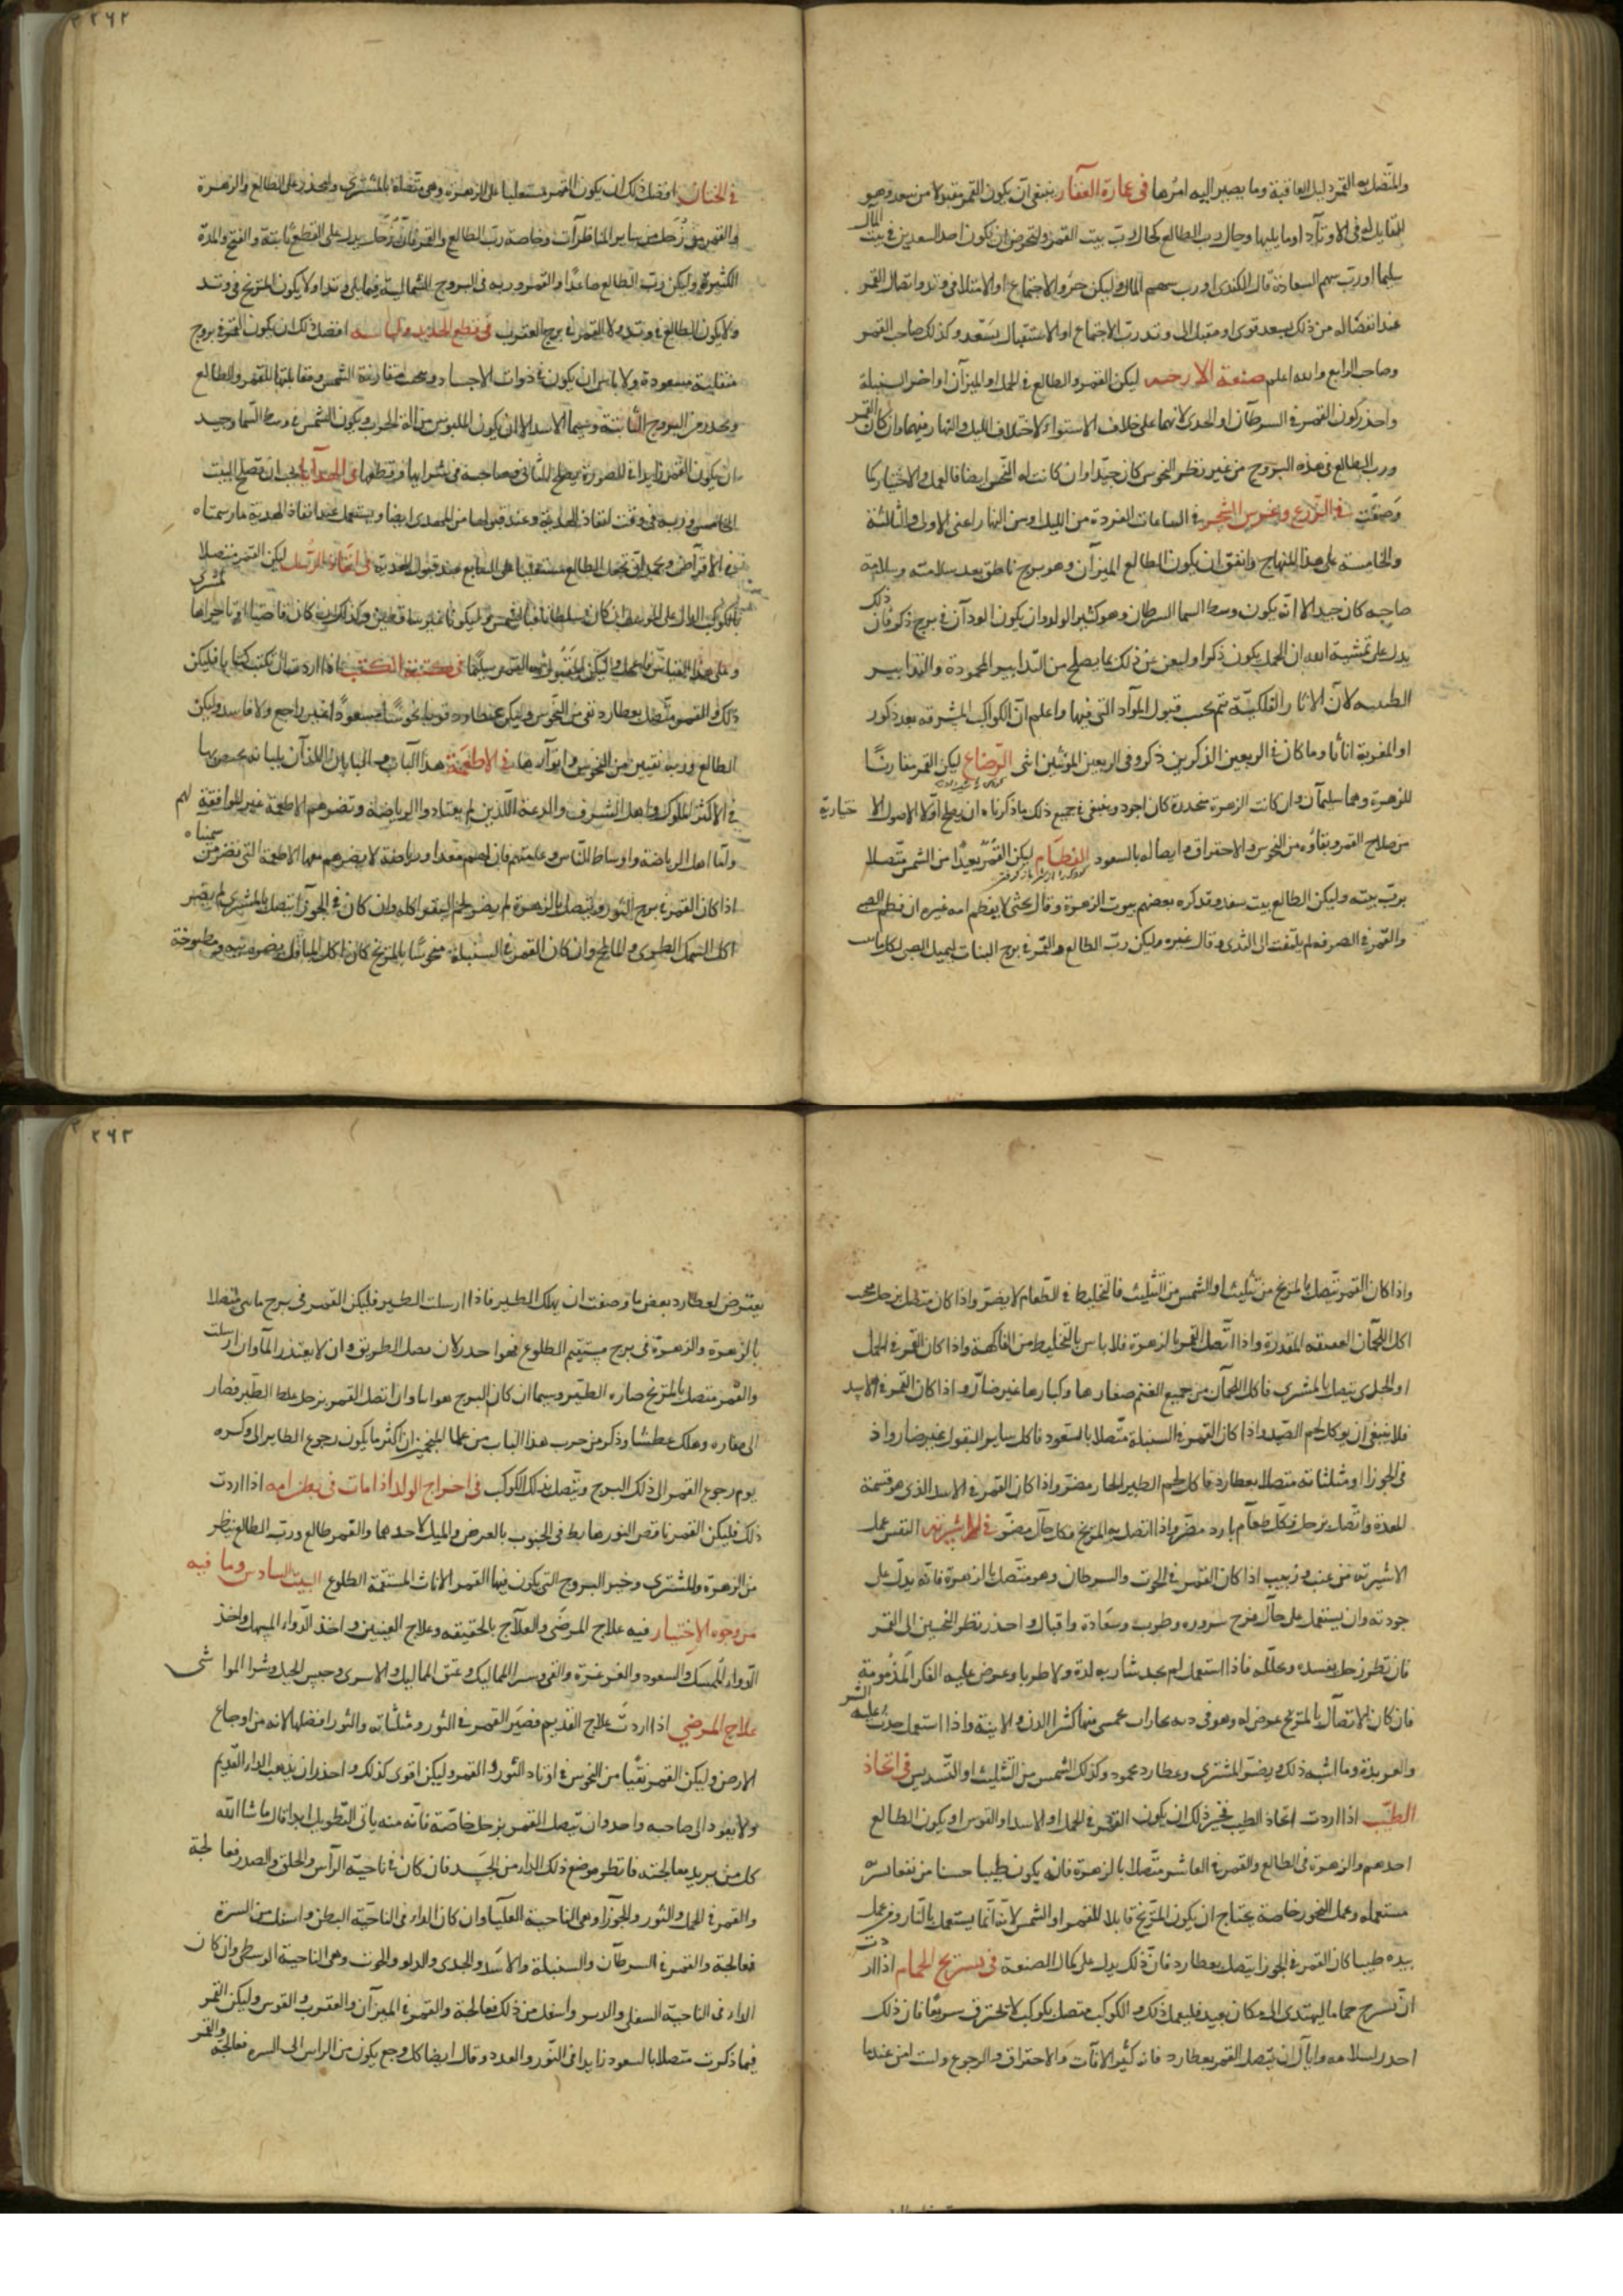 والمتصل به القمر دليل العاقبة وما يصير اليه امرها في عمارة العقار ينبغي ان يكون القمر مقبولا من سعد وهو
المقابل له في الاوتاد او ما يليها وحال رب الطالع كحال رب بيت القمر والتحرص ان يكون احد السعدين في بيت المال
سليما او رب سهم السعادة قال الكندي او رب سهم المال وليكن جزو الاجتماع او الامتلا في وتد واتصال القمر
عند انفصاله من ذلك بسعد قوي او مقبل الى وتد رب الاجتماع او الاستقبال يسعد وكذلك صاحب القمر
وصاحب الرابع والله اعلم صنعة الارحيه ليكن القمر والطالع في الحمل او الميزان او اخر السنبلة
واحذر كون القمر في السرطان او الجدي لانهما على خلاف الاستواء لاختلاف الليل والنهار فيهما وان كان القمر
ورب الطالع في هذه البروج من غير نظر النحوس كان جيدا وان كانت له النحس ايضا فالعمل والاختيار كما
وصفت في الزرع وغرس الشجر في الساعات المفردة من الليل ومن النهار اعني الاولى والثالثة
والخامسة على هذا المنهاج واتفق ان يكون الطالع الميزان وهو برج ناطق بعد سلامته وسلامة
صاحبه كان جيدا الا انه يكون وسط السما السرطان وهو كثير الولد وان يكون الودان في برج ذكر فان ذلك
يدل على تمشية الله ان الحمل يكون ذكرا وليعن عن ذلك بما يصلح من التدابير المحمودة والتدابير
الطبيه لان الاثار الفلكية تتم بحسب قبول المواد التي فيها واعلم ان الكواكب المشرقه بعد ذكور
او المغربة اناثا وما كان في الربعين الذكرين ذكر وفي الربعين المونثين انثى الرضاع ليكن القمر مقارنا
للزهرة وهما سليمان وان كانت الزهرة منحدرة كان اجود وينبغي في جميع ذلك ما ذكرناه ان يصلح اولا الاصول الاختيارية
من صلاح القمر ونقاؤه من النحوس والاحتراق واتصاله بالسعود الفطام ليكن القمر بعيدا من الشمس متصلا
برب بيته وليكن الطالع بيت سعد وقد كره بعضهم بيوت الزهرة وقال يحيى لا يفطم امه غيره ان فطم الصبي
والقمر في الصرفه لم يلتفت الى الثدي وقال غيره وليكن رب الطالع والقمر في برج النبات ليميل الصبي لكل نبات
في الختان افضل ذلك ان يكون القمر مستعليا على الزهرة وهي متصلة بالمشتري وليحذر على الطالع والزهرة
والقمر من زحل من ساير المناظرات وخاصة رب الطالع والقمر فان زحل يدل على القطع ثانية والقيح والمدة
الكثيرة وليكن رب الطالع صاعدا والقمر وربه في البروج الشمالية فيما يلي وتد او لا يكون المريخ في وتد
ولا يكون الطالع في وتد ولا القمر في برج العقرب في قطع الجديد ولباسه افضل ذلك ان يكون القمر في بروج
منقلبة مسعودة ولا باس ان يكون في ذوات الاجساد وتجنب مقارنة الشمس ومقابلتها للقمر والطالع
ويحذر من البروج الثابتة وسيما الاسد الا ان يكون الملبوس من الة الحرب ويكون الشمس في وسط السما وجيد
ان يكون القمر زايدا في الصورة يصلح للثاني وصاحبه في شرايها وقطعها في الهدايا يجب ان تصلح البيت
الخامس وربه في وقت انفاذ الهدية وعند قبولها من المهدي ايضا ويستعمل عند انفاذ الهدية ما رسمناه
في الاقراض ويجب ان تجعل الطالع مستقيما هي السابع عند قبول الهدية في اتخاذ الرسل ليكن القمر متصلا
بالكوكب الدال على المرسل ان كان سلطانا فبالشمس وليكونا غير ساقطين وكذلك ان كان قاضيا او تاجرا فالمشتري
وعلى هذا القياس ما شاكله وليكن المقبول له القمر سليما في كتبة الكتب اذا اردت ان تكتب كتابا فليكن
ذلك والقمر متصل بعطارد نقي من النحوس وليكن عطارد قويا لا منحوسا مسعودا غير راجع ولا فاسد وليكن
الطالع وربه نقيين من النحوس واوتارها في الاطعمة هذا الباب والبابان اللذان يليانه يحسن بها
في الاكثر الملوك واهل الشرف والدعة الذين لم يعتادوا الرياضة وتضرهم الاطعمة غير الموافقة لهم
واما اهل الرياضة واوساط الناس وعامتهم فان لهم معدا ورياضة لا يضرهم معها الاطعمة التي تضر من سمناه
اذا كان القمر في برج الثور ويتصل بالزهرة لم يضر لحم البقر اكله وان كان في الجوزا يتصل بالمشتري لم يضر
اكل السمك الطري والمالح وان كان القمر في السنبلة منحوسا بالمريخ كان اكل الباقلي مضره نيه ومطبوخة
واذا كان القمر متصل بالمريخ من تثليث او الشمس من التثليث فالتخليط في الطعام لا يضر واذا كان متصل بزحل فتجنب
اكل اللحمان العتيقه المقدرة واذا اتصل القمر بالزهرة فلا باس بالتخليط من الفاكهة واذا كان القمر في الحمل
او الجدي يتصل بالمشتري فاكل اللحمان من جميع الغنم صغارها وكبارها غير ضار واذا كان القمر في الاسد
فلا ينبغي ان يوكل لحم الصيد واذا كان القمر في السنبلة متصلا بالسعود فاكل ساير البقول غير ضار واذ
في الجوزا او مثلثاته متصلا بعطارد فاكل لحم الطير الحار مضر واذا كان القمر في الاسد الذي هو قسمة
المعدة واتصل بزحل فكل طعام بارد مضر واذا اتصل به المريخ فكل حار مضر في الاشربة التفس عمل
الاشربة من عنب وزبيب اذا كان القمر في الحوت والسرطان وهو متصل بالزهرة فانه يدل على
جودته وان يستعمل على حال فرح سروره وطرب وسعادة واقبال واحذر نظر النحسين الى القمر
فان نظر زحل يفسده ويحلله فاذا استعمل لم يجد شاربه لذة ولا طربا وعرض عليه الفكر المذمومة
فان كان الاتصال بالمريخ عرض له وهو في دنه بخارات يحمي منها كثرا الدن والانية واذا استعمل حدث عليه الشر
والعربدة وما اشبه ذلك ويضر المشتري وعطارد محمود وكذلك الشمس من التثليث او التسديس في اتخاذ
الطيب اذا اردت اتخاذ الطيب فخير ذلك ان يكون القمر في الحمل او الاسد او القوس او يكون الطالع
احدهم والزهرة في الطالع والقمر في العاشر متصلا بالزهرة فانه يكون طيبا حسنا من نفعا سره
مستعمله وعمل البخور خاصة يحتاج ان يكون المريخ قابلا للقمر او الشمس لانه انما يستعمل بالنار ومن عمل
بيده طيبا كان القمر في الجوزا يتصل بعطارد فان ذلك يدل على كمال الصنعة في تسريح الحمام اذا اردت
ان تسرح حماما ليهتدي الى مكان بعيد فليعمل ذلك والكوكب متصل بكوكب لا يحترق سريعا فان ذلك
احذر لسلامه واياك ان يتصل القمر بعطارد فانه كثير الافات والاحتراق والرجوع ولست امن عندما
يعترض لعطارد بعض ما وصفت ان يهلك الطير فاذا ارسلت الطير فليكن القمر في برج مايي متصلا
بالزهرة والزهرة في برج مستقيم الطلوع فهو احدر لان يصل الطريق وان لا يعتذر المآ وان ارسلت
والقمر متصل بالمريخ صاره الطير وسيما ان كان البرج هوايا وان اتصل القمر بزحل غلط الطير فصار
الى مغاره وهلك عطشا وذكر من جرب هذا الباب من علما المنجمين ان اكثر ما يكون رجوع الطاير الى وكره
يوم رجوع القمر الى ذلك البرج ويتصل بذلك الكوكب في اخراج الولد اذا مات في بطن امه اذا اردت
ذلك فليكن القمر ناقص النور هابط في الجنوب بالعرض والميل لاحدهما والقمر طالع ورب الطالع ينظر
من الزهرة والمشتري وخير البروج التي يكون فيها القمر الاناث المستقيمة الطلوع البيت السادس وما فيه
من وجوه الاختيار فيه علاج المرضى والعلاج بالحقيقه وعلاج العينين واخذ الدواء المسهل واخذ
الدواء الممسك والسعود والغرغرة والقي وشرا المماليك وعتق المماليك والاسرى وحبس الخيل وشرا المواشي
علاج المرضى اذا اردت علاج القديم فصير القمر في الثور ومثلثاته والثور افضلها لانه من اوجاع
الارض وليكن القمر نقيا من النحوس في اوتاد الثور والقمر وليكن اقوى كذلك واحذر ان يذهب الداء القديم
ولا يعود الى صاحبه واحد وان يتصل القمر بزحل خاصة فانه منه ياتي التطويل ابدا قال ما شا الله
كل من يريد معالجته فانظر موضع ذلك الداء من الجسد فان كان في ناحية الراس والحلق والصدر فعالجه
والقمر في الحمل والثور والجوزا وهي الناحية العليا وان كان الداء في الناحية البطن واسفل من السرة
فعالجه والقمر في السرطان والسنبلة والاسد والجدي والدلو والحوت وهي الناحية الوسطى وان كان
الداء في الناحية السفلى والدبر واسفل من ذلك فعالجه والقمر في الميزان والعقرب والقوس وليكن القمر
فيما ذكرت متصلا بالسعود زايدا في النور والعدد وقال ايضا كل وجع يكون من الراس الى السره فعالجه والقمر